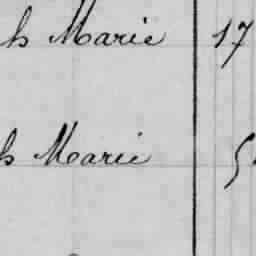 h Marie 17
h Marie 5